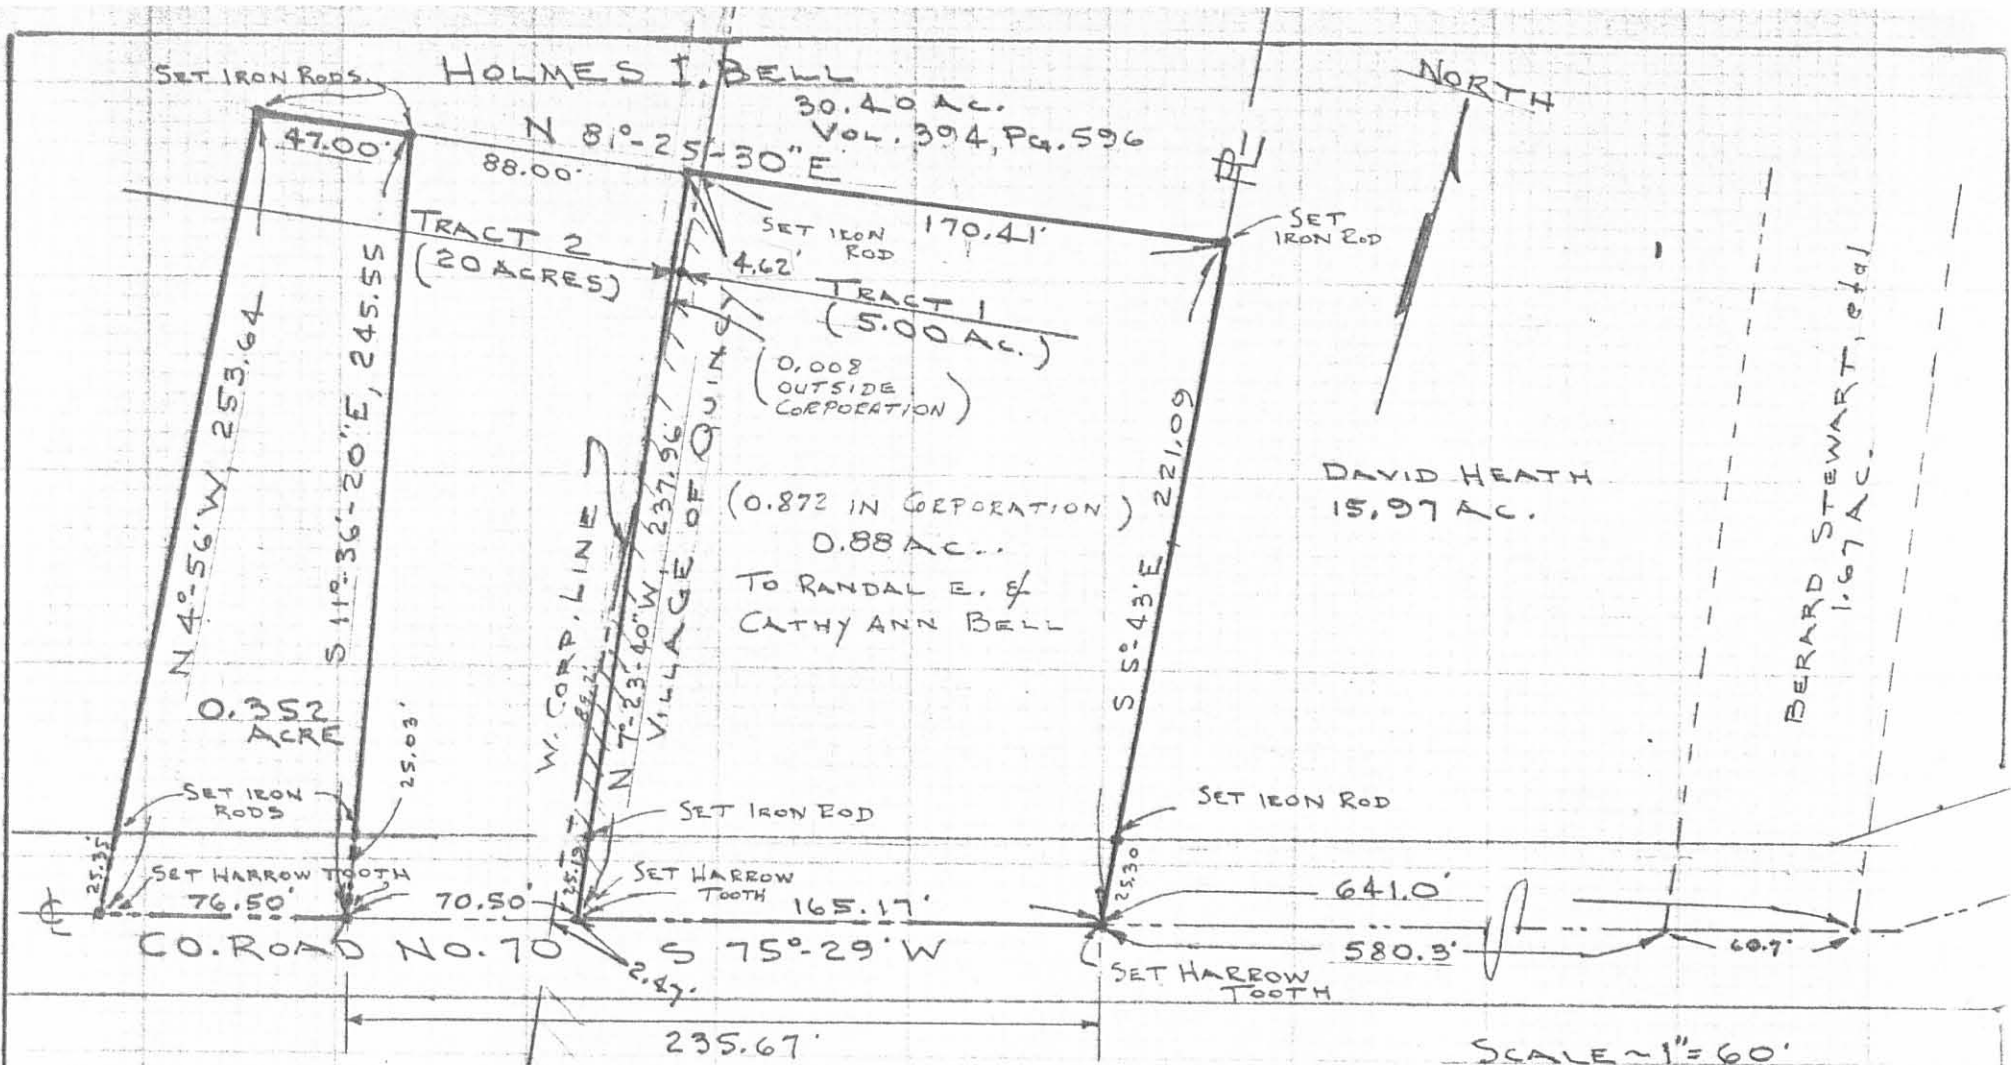 SET IRON RODS.
HOLMES I. BELL
30.40 AC.
VOL. 394, PG. 596
NORTH
47.00'
N 81°-25'-30" E
88.00'
PL
SET IRON ROD
170.41'
SET IRON ROD
TRACT 2
(20 ACRES)
4.62'
TRACT 1
(5.00 AC.)
(0.008
OUTSIDE
CORPORATION)
N 4°-56' W, 253.64
S 11°-36'-20" E, 245.55
W. CORP. LINE
N 7°-23'-40" W 237.96'
VILLAGE OF QUINCY
(0.872 IN CORPORATION)
0.88 AC..
TO RANDAL E. &
CATHY ANN BELL
S 5°-43' E, 221.09
DAVID HEATH
15.97 AC.
BERARD STEWART, etal
1.67 AC.
0.352
ACRE
25.03'
SET IRON
RODS
SET IRON ROD
SET IRON ROD
25.35'
SET HARROW TOOTH
SET HARROW
TOOTH
25.30
76.50'
70.50'
165.17'
641.0'
CO. ROAD NO. 70
S 75°-29' W
580.3'
60.7'
SET HARROW
TOOTH
235.67'
SCALE ~ 1" = 60'